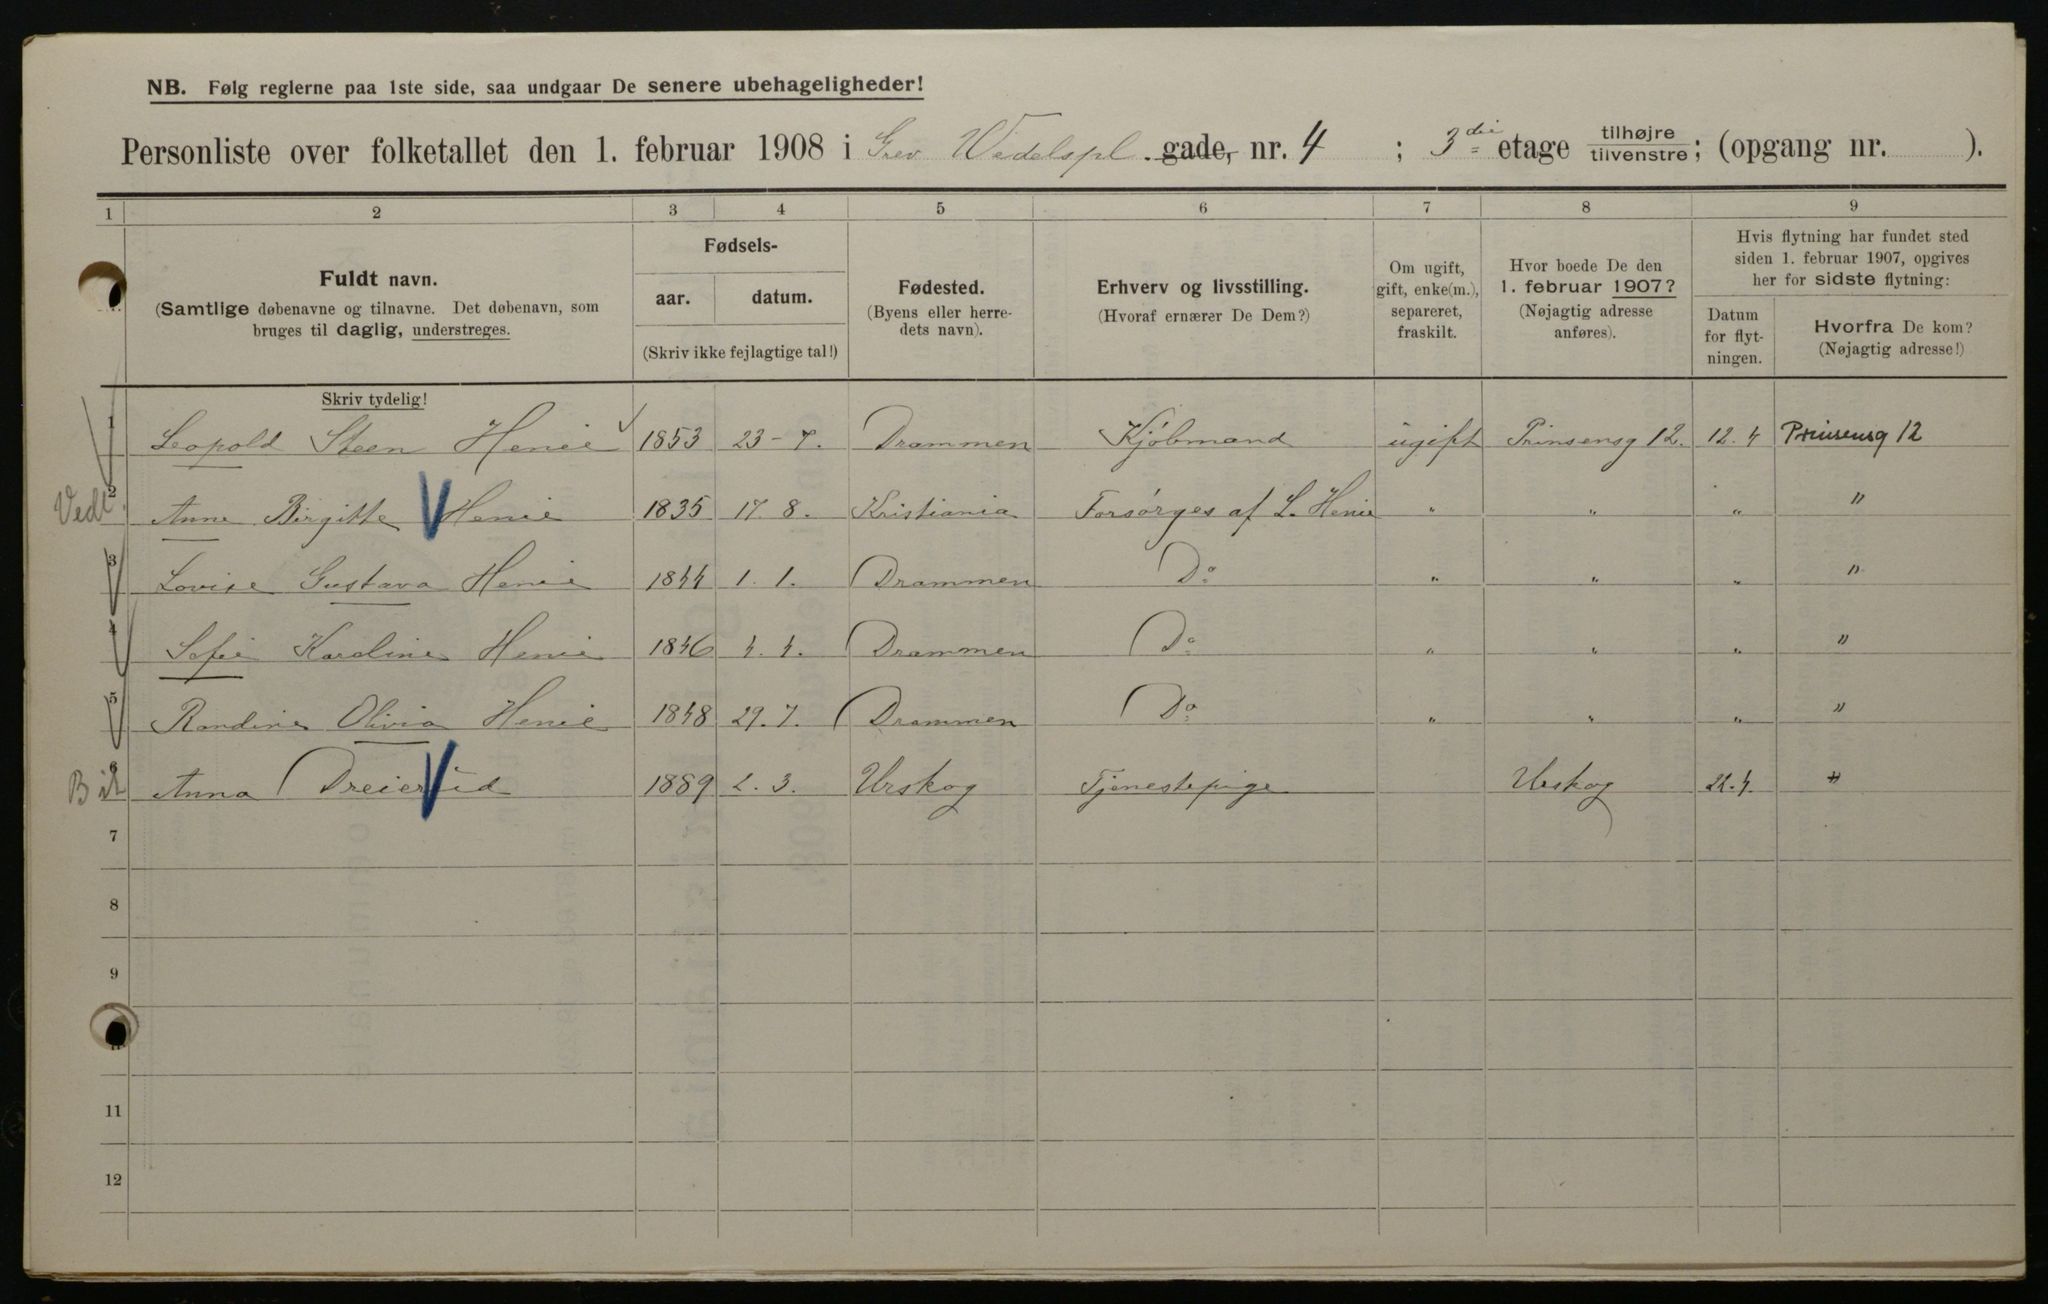 NB. Følg reglerne paa 1ste side, saa undgaar De senere ubehageligheder!
Personliste over folketallet den 1. februar 1908 i Grev Wedelspl. gade, nr. 4 ; 3die etage tilhøjre/tilvenstre; (opgang nr. ).
1 2 3 4 5 6 7 8 9
Fuldt navn.
(Samtlige døbenavne og tilnavne. Det døbenavn, som
bruges til daglig, understreges.
Skriv tydelig!
Fødsels-
aar. datum.
(Skriv ikke fejlagtige tal!)
Fødested.
(Byens eller herre-
dets navn).
Erhverv og livsstilling.
(Hvoraf ernærer De Dem?)
Om ugift,
gift, enke(m.),
separeret,
fraskilt.
Hvor boede De den
1. februar 1907?
(Nøjagtig adresse
anføres).
Hvis flytning har fundet sted
siden 1. februar 1907, opgives
her for sidste flytning:
Datum
for flyt-
ningen.
Hvorfra De kom?
(Nøjagtig adresse!)
1 Leopold Steen Henie 1853 23-7. Drammen Kjøbmand ugift Prinsensg 12. 12.4 Prinsensg 12
Vedt. 2 Anne Birgitte Henie 1835 17.8. Kristiania Forsørges af L. Henie " " " "
3 Lovise Gustava Henie 1844 1.1. Drammen Do " " " "
4 Sofie Karoline Henie 1846 4.4. Drammen Do " " " "
5 Randine Olivia Henie 1848 29.7. Drammen Do " " " "
6 Anna Dreierud 1889 2.3. Urskog Tjenestepige Urskog 22.4. "
7
8
9
11
12